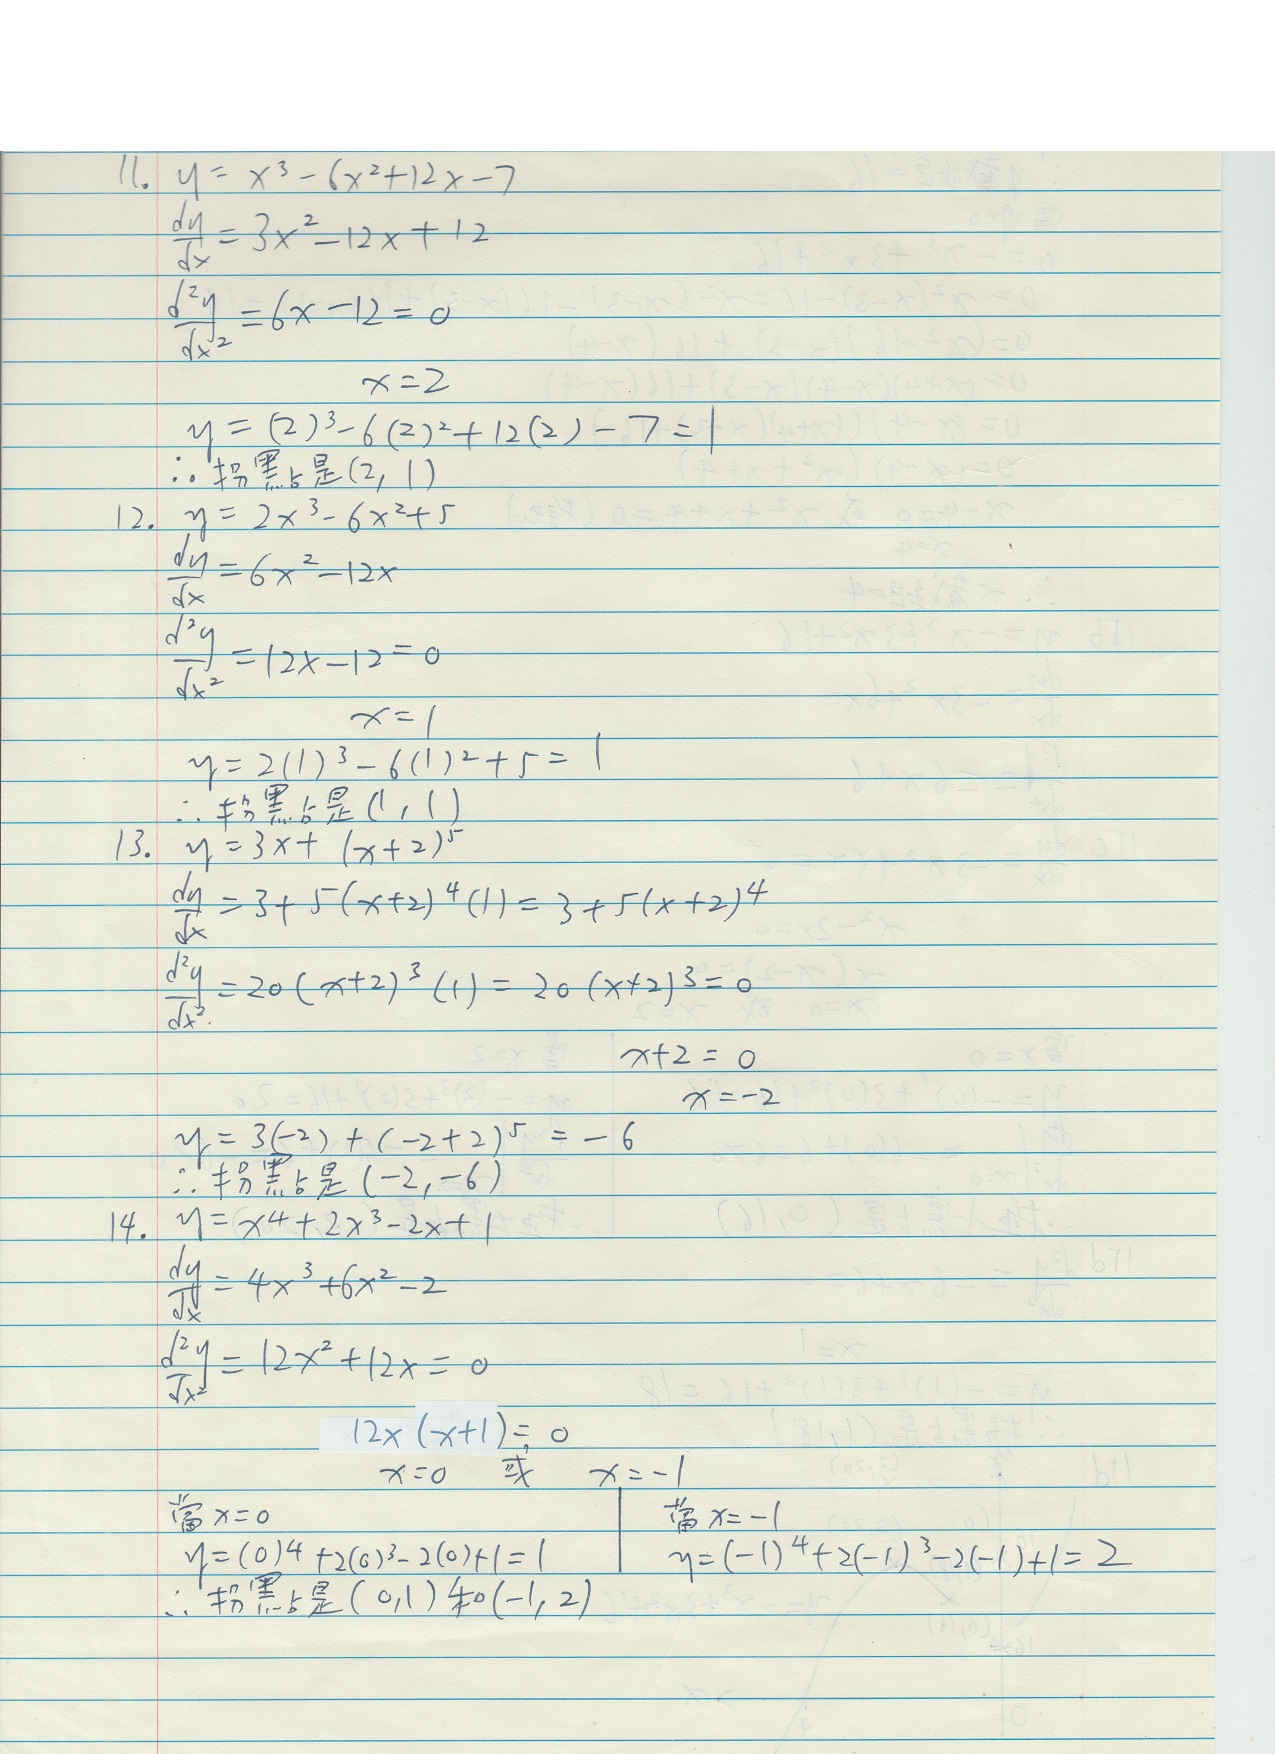 11. y = x³ - 6x² + 12x - 7
dy/dx = 3x² - 12x + 12
d²y/dx² = 6x - 12 = 0
x = 2
y = (2)³ - 6(2)² + 12(2) - 7 = 1
∴ 拐點是(2, 1)
12. y = 2x³ - 6x² + 5
dy/dx = 6x² - 12x
d²y/dx² = 12x - 12 = 0
x = 1
y = 2(1)³ - 6(1)² + 5 = 1
∴ 拐點是(1, 1)
13. y = 3x + (x+2)⁵
dy/dx = 3 + 5(x+2)⁴(1) = 3 + 5(x+2)⁴
d²y/dx² = 20(x+2)³(1) = 20(x+2)³ = 0
x+2 = 0
x = -2
y = 3(-2) + (-2+2)⁵ = -6
∴ 拐點是(-2, -6)
14. y = x⁴ + 2x³ - 2x + 1
dy/dx = 4x³ + 6x² - 2
d²y/dx² = 12x² + 12x = 0
12x(x+1) = 0
x = 0 或 x = -1
當 x = 0 當 x = -1
y = (0)⁴ + 2(0)³ - 2(0) + 1 = 1 y = (-1)⁴ + 2(-1)³ - 2(-1) + 1 = 2
∴ 拐點是(0,1)和(-1, 2)